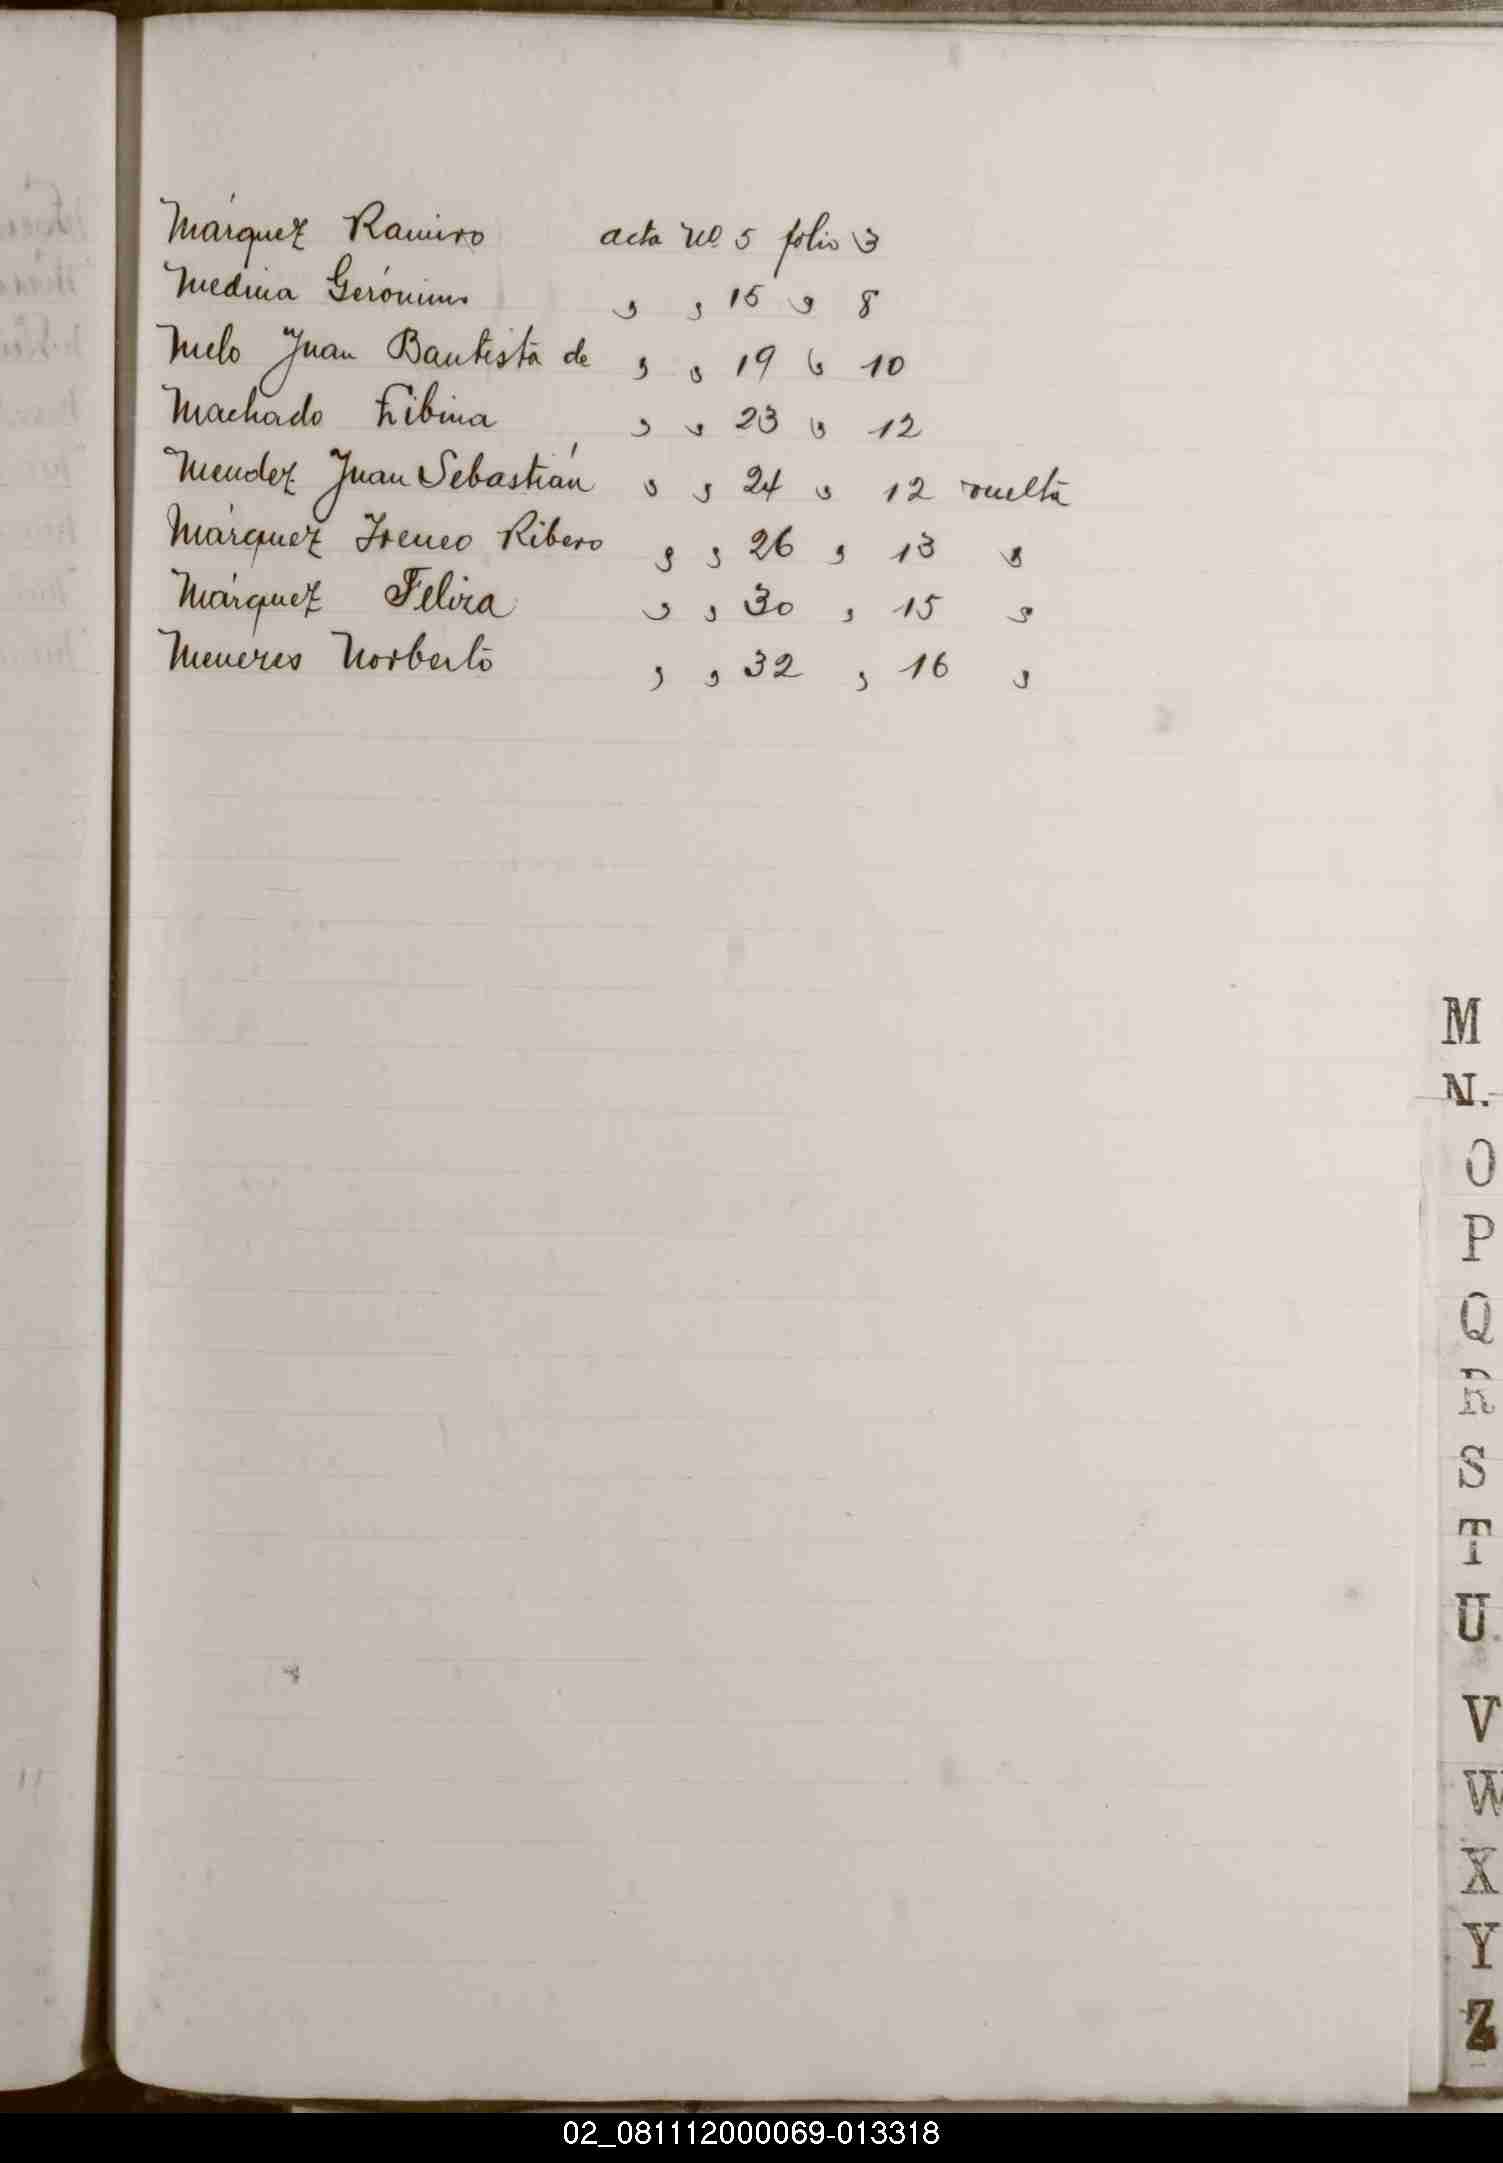 Márquez Ramiro acta Nº 5 folio 3
Medina Gerónimo " " 15 " 8
Melo Juan Bautista de " " 19 " 10
Machado Libina " " 23 " 12
Mendez Juan Sebastián " " 24 " 12 vuelta
Márquez Ireneo Ribero " " 26 " 13 "
Márquez Felisa " " 30 " 15 "
Meneses Norberto " " 32 " 16 "
M
N.
O
P
Q
R
S
T
U
V
W
X
Y
Z
02_081112000069-013318